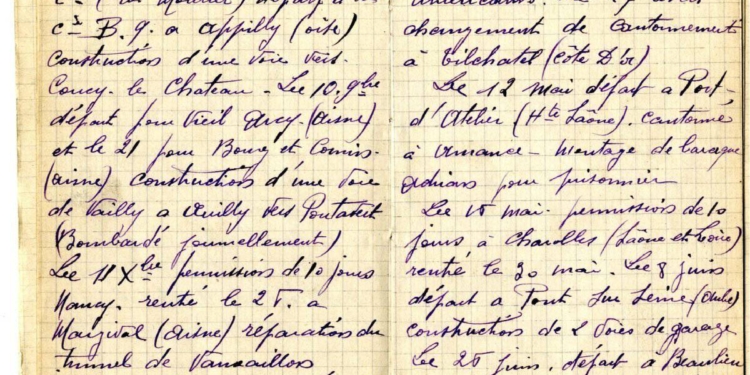 c^s B. g. a Appilly (oise)
constructions d'une voie vers
Coucy-le Chateau - Le 10. 9bre
départ pour Vieil Arcy (aisne)
et le 21 pour Bourg et Comin-
(aisne) constructions d'une voie
de Vailly a Œuilly vers Pontavert
(Bombardé journellement)
Le 11 Xbre permissions de 10 jours
Nancy. rentré le 25. a
Margival (aisne) réparations du
tunnel de Vauxaillons
changement de cantonnement
à Tilchatel (Côte D'or)
Le 12 mai départ a Port-
d'Atelier (Hte Saône). cantonné
à Amance - montage de baraque
Adrians pour prisonnier
Le 15 mai. permissions de 10
jours à Charolles (Saône et Loire)
rentré le 30 mai. Le 8 juin
départ a Pont sur Seine (Aube)
constructions de 2 voies de garage
Le 25 juin, départ à Beaulieu